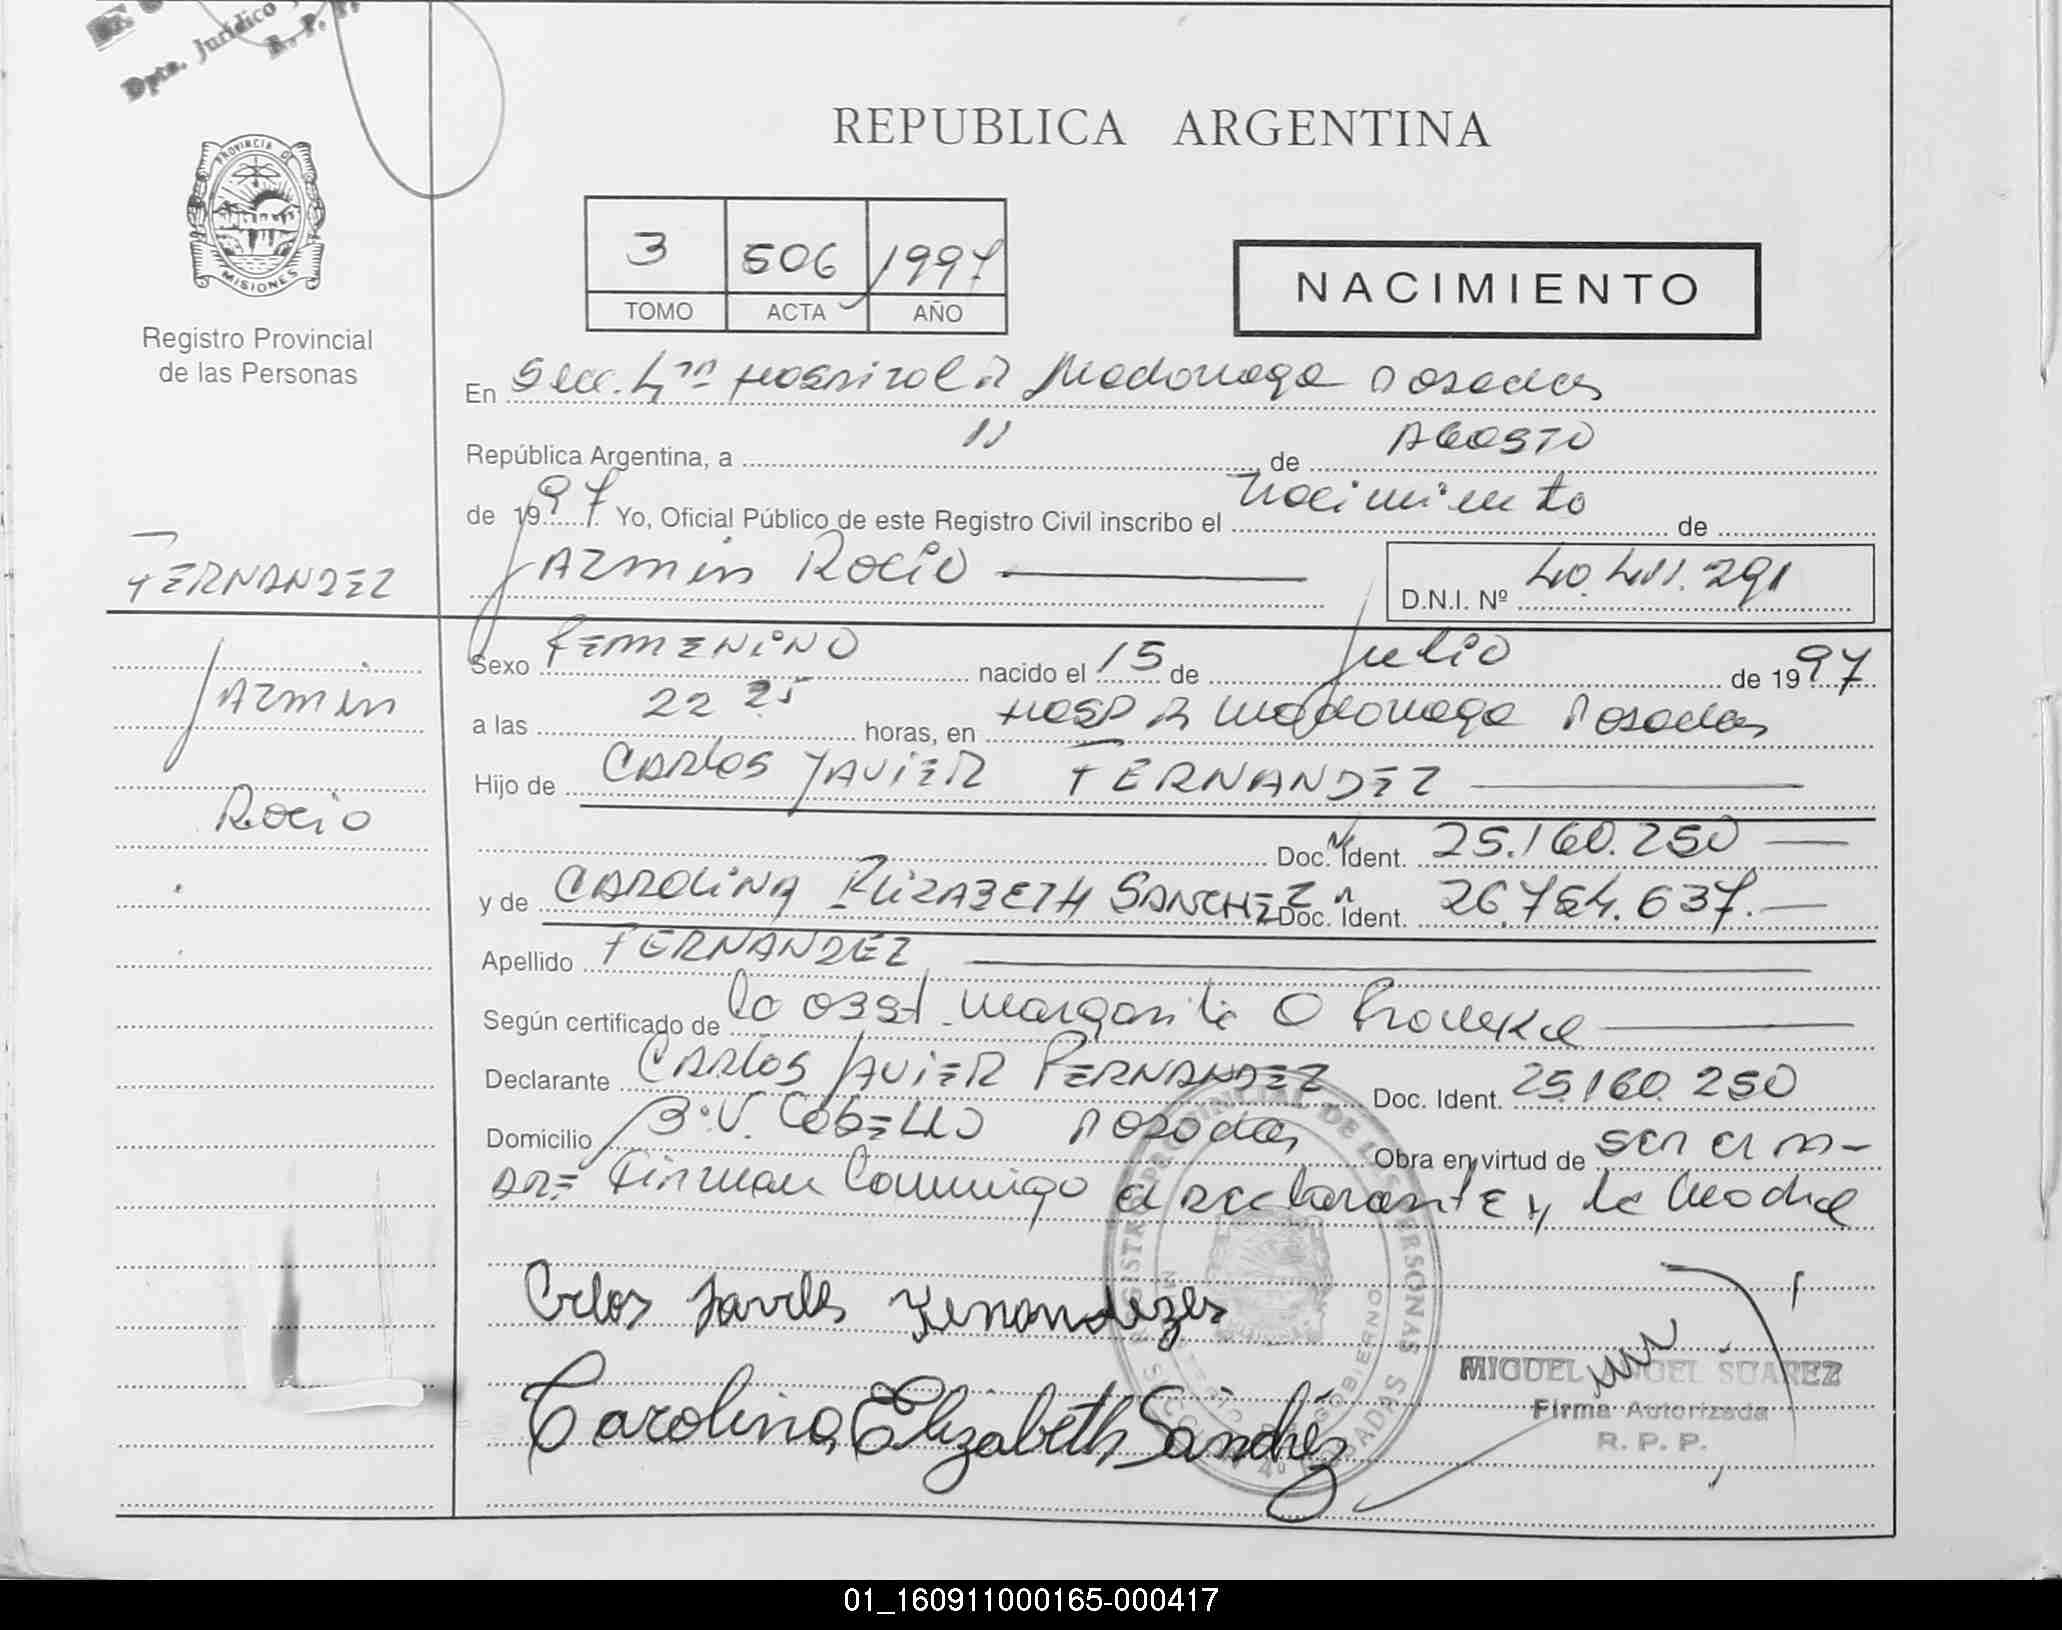 Dpto. Jurídico
R. P. P.
PROVINCIA DE
MISIONES
Registro Provincial
de las Personas
REPUBLICA ARGENTINA
3 506 1997
TOMO ACTA AÑO
NACIMIENTO
En Secc. 4ta Hospital R Madariaga Posadas
República Argentina, a 11 de AGOSTO
de 1997 Yo, Oficial Público de este Registro Civil inscribo el Nacimiento de
JAZMIN ROCIO D.N.I. Nº 40.411.291
FERNANDEZ
JAZMIN
ROCIO
Sexo FEMENINO nacido el 15 de Julio de 1997
a las 22 25 horas, en HOSP R Madariaga Posadas
Hijo de CARLOS JAVIER FERNANDEZ
Doc. Ident. 25.160.250
y de CAROLINA ELIZABETH SANCHEZ Doc. Ident. 26.754.637.
Apellido FERNANDEZ
Según certificado de la obst. Margarita O
Declarante CARLOS JAVIER FERNANDEZ Doc. Ident. 25.160.250
Domicilio Bº.V. CABELLO Posadas Obra en virtud de SER el PA-
DRE Firman Conmigo el declarante y la Madre
REGISTRO PROVINCIAL DE LAS PERSONAS
Carolina Elizabeth Sánchez
MIGUEL ANGEL SUAREZ
Firma Autorizada
R. P. P.
01_160911000165-000417